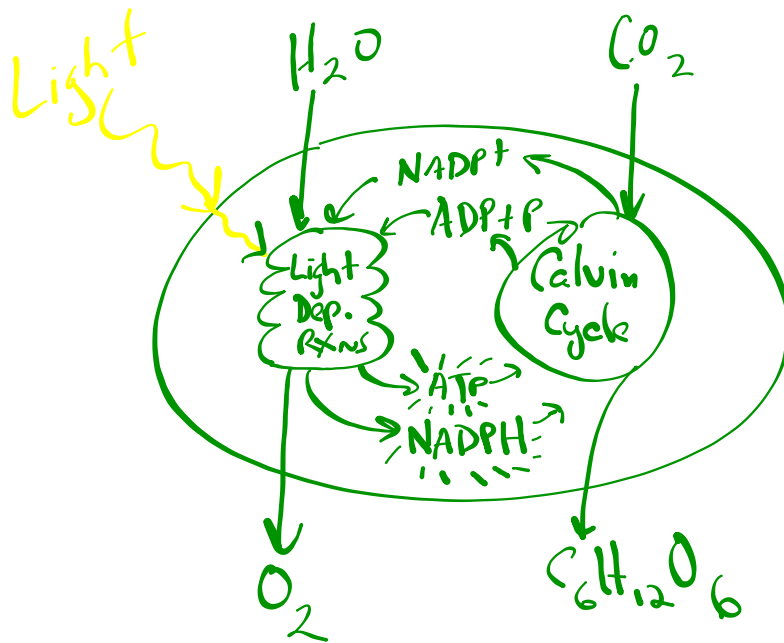 Light
H₂O
CO₂
NADP+
ADP+P
Light
Dep.
RXNS
Calvin
Cycle
ATP
NADPH
O₂
C₆H₁₂O₆